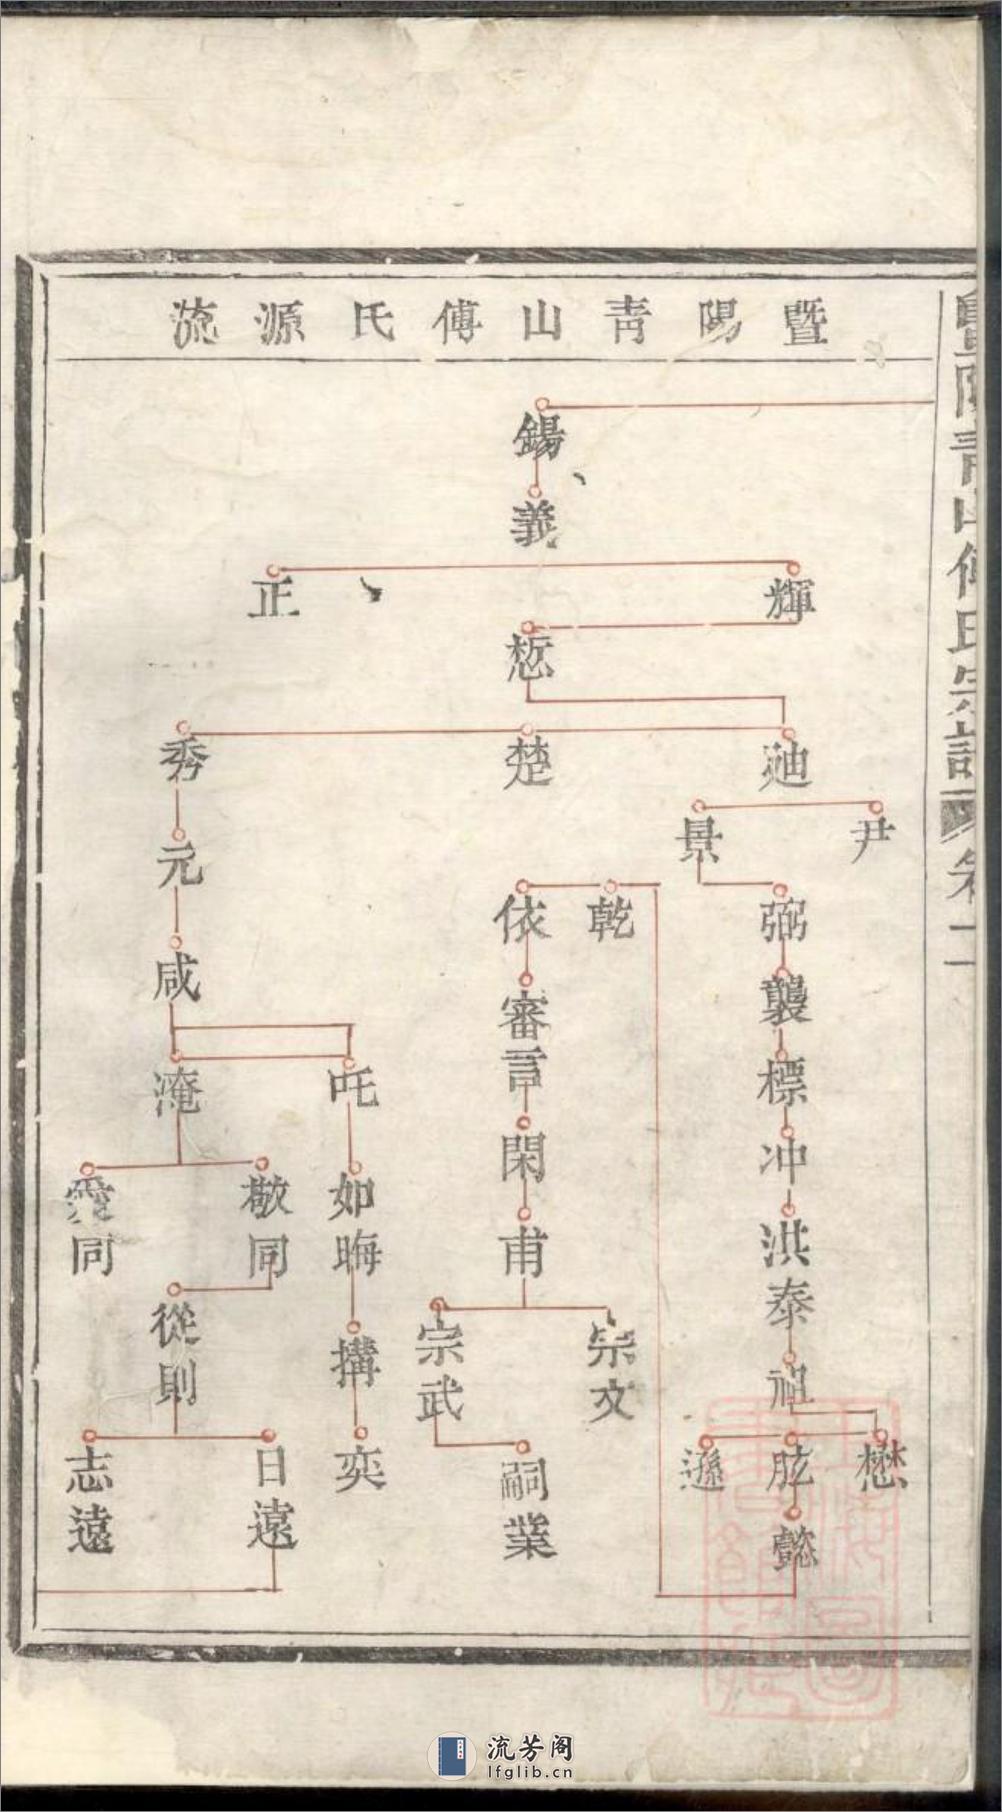 暨陽青山傅氏宗譜 卷二
暨陽青山傅氏源流
錫
義
輝
正
悊
廸
楚
秀
尹
景
元
弼
乾
依
咸
襲
審言
標
淹
吒
閑
冲
敬同
愛同
如晦
甫
洪泰
從則
宗文
宗武
搆
祖
懋
肱
遜
嗣業
奕
日遠
志遠
懿
流芳阁
lfglib.cn